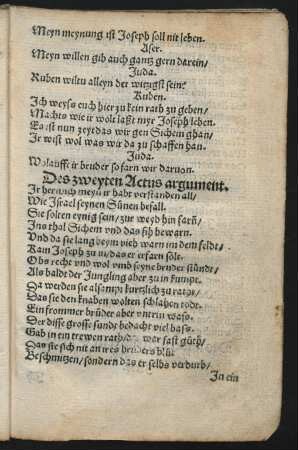 Meyn meynung ist Joseph soll nit leben.
Aser.
Meyn willen gib auch gantz gern darein/
Juda.
Ruben wiltu alleyn der witzigst sein?
Ruben.
Ich weyß euch hier zu kein rath zu geben/
Machts wie ir wolt laßt myr Joseph leben.
Es ist nun zeyt das wir gen Sichem ghan/
Ir wist wol was wir da zu schaffen han.
Juda.
Wolauff ir bruder so farn wir daruon.
Des zweyten Actus argument.
Ir herrn ich meyn ir habt verstanden all/
Wie Israel seynen Sünen befall.
Sie solten eynig sein/zur weyd hin farn/
Ins thal Sichem vnd das fih bewarn.
Vnd da sie lang beym vieh warn im dem feldt/
Kam Joseph zu in/das er erfarn solt.
Obs recht vnd wol vmb seyne bruder stündt/
Als baldt der Jungling aber zu in kumpt.
Da werden sie alsampt kurtzlich zu rath/
Das sie den knaben wolten schlahen todt.
Ein frommer brüder aber vnterin was.
Der disse grosse sundt bedacht viel baß.
Gab in ein trewen rath/ wer fast güth/
Das sie sich nit an ires bruders blüt
Beschmitzen/sondern das er selbs verdurb/
In ein